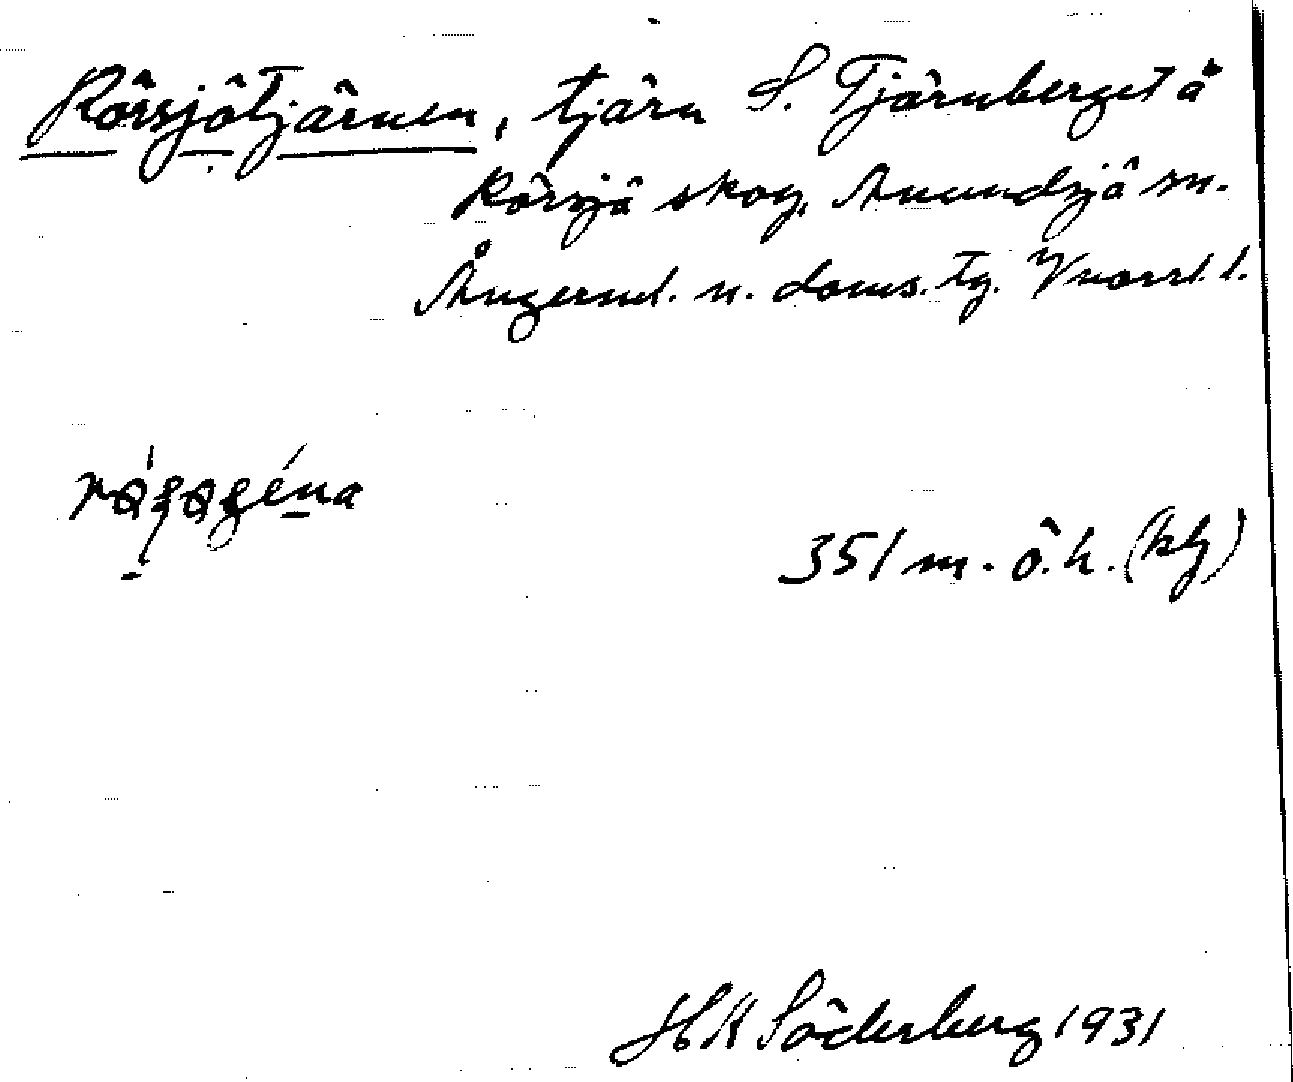 Rörsjötjärnen, tjärn S. Tjärnberget å
Rörsjö skog, Anundsjö sn.
Ångerml. n. doms. tg. Vnorrl. l.
351 m. ö. h. (kg)
HK Söderberg 1931